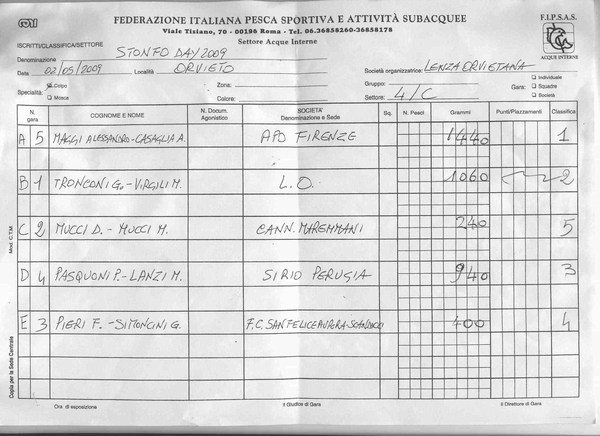 FEDERAZIONE ITALIANA PESCA SPORTIVA E ATTIVITÀ SUBACQUEE
Viale Tiziano, 70 - 00196 Roma - Tel. 06.36858260-36858178
Settore Acque Interne
F.I.P.S.A.S.
ACQUE INTERNE
ISCRITTI/CLASSIFICA/SETTORE
Denominazione STONFO DAY 2009
Data 02/05/2009 Località ORVIETO Società organizzatrice: LENZA ORVIETANA
Specialità: Colpo Mosca
Zona:
Colore:
Gruppo:
Settore: 4/C
Gara: Individuale Squadre Società
N. gara COGNOME E NOME N. Docum. Agonistico SOCIETÀ Denominazione e Sede Sq. N. Pesci Grammi Punti/Piazzamenti Classifica
A 5 MAGGI ALESSANDRO - CASAGLIA A. APO FIRENZE 1440 1
B 1 TRONCONI G. - VIRGILI M. L.O. 1060 2
C 2 MUCCI D. - MUCCI M. CANN. MAREMMANI 240 5
D 4 PASQUONI P. - LANZI M. SIRIO PERUGIA 940 3
E 3 PIERI F. - SIMONCINI G. F.C. SANFELICE AURORA 400 4
Mod. C.T.M.
Copia per la Sede Centrale
Ora di esposizione Il Giudice di Gara Il Direttore di Gara